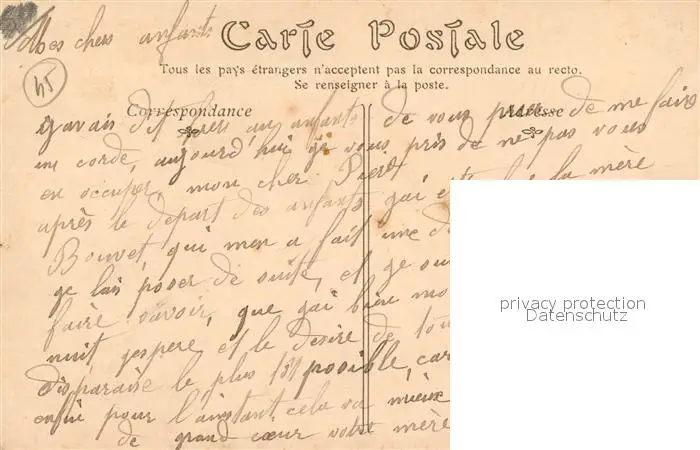 Mes chers enfants
Carte Postale
Tous les pays étrangers n'acceptent pas la correspondance au recto.
Se renseigner à la poste.
45
Correspondance
Adresse
javais dit hier au enfants de vous prier de me faire
une corde, aujourd hui je vous pris de ne pas vous
en occuper, mon cher
après le départ des enfants gai été la mère
Bouvet, qui men a fait une
je lais poser de suite, et je
faire savoir, que gai bien
nuit, jespere et le desire de
disparaise le plus possible, car
enfin pour l'instant cela va mieux
de grand cœur votre mère
privacy protection
Datenschutz